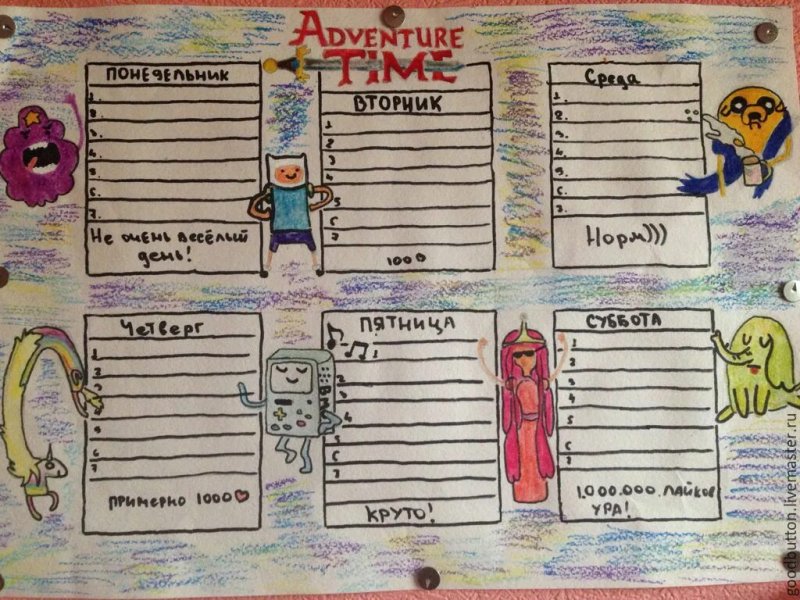 ADVENTURE
TIME
ПОНЕДЕЛЬНИК
1.
2.
3.
4.
5.
6.
7.
Не очень весёлый
день!
ВТОРНИК
1
2
3
4
5
6
7
1000
Среда
1.
2.
3.
4.
5.
6.
7.
Норм)))
Четверг
1
2
3
4
5
6
7
примерно 1000
ПЯТНИЦА
1
2
3
4
5
6
7
КРУТО!
BMO
СУББОТА
1
2
3
4
5
6
7
1.000.000. ЛАЙКОВ
УРА!
goodbutton.livemaster.ru